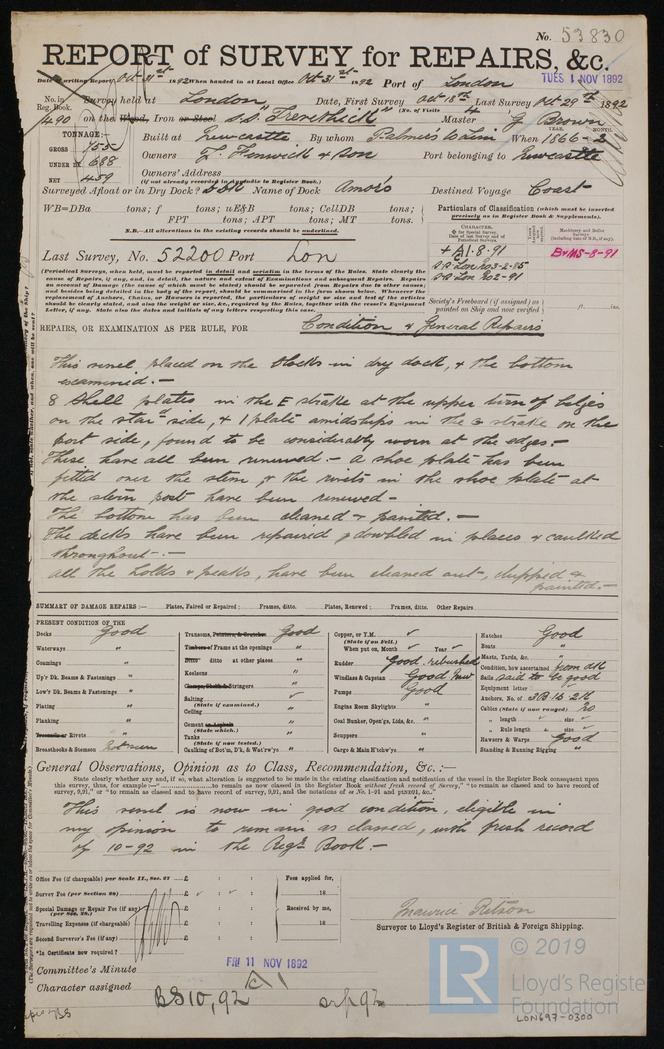 No. 53830
REPORT of SURVEY for REPAIRS, &c.
Date of writing Report Oct 31st 1892 When handed in at Local Office Oct 31st 1892 Port of London
TUES 1 NOV 1892
No. in Reg. Book. Survey held at London, Date, First Survey Oct 18th Last Survey Oct 29th 1892
(No. of Visits 4
490 on the Wood, Iron or Steel S.S. "Trevethick" Master G Brown
TONNAGE:— Built at Newcastle By whom Palmer's & Co Lim When 1866 - 2
YEAR. MONTH.
GROSS 755
UNDER DK 688
NET 459
Owners J. Fenwick & Son Port belonging to Newcastle
Owners' Address
(if not already recorded in Appendix to Register Book.)
Surveyed Afloat or in Dry Dock? DDk Name of Dock Amos Destined Voyage Coast
WB=DBa tons; f tons; uE&B tons; CellDB tons;
FPT tons; APT tons; MT tons.
N.B.—All alterations in the existing records should be underlined.
Particulars of Classification (which must be inserted precisely as in Register Book & Supplements).
Last Survey, No. 52200 Port Lon
+A1-8-91
B&MS-8-91
(Periodical Surveys, when held, must be reported in detail and seriatim in the terms of the Rules. State clearly the cause of Repairs, if any, and, in detail, the nature and extent of Examinations and subsequent Repairs. Repairs on account of Damage (the cause of which must be stated) should be separated from Repairs due to other causes; and besides being detailed in the body of the report, should be summarised in the form shown below. Whenever the replacement of Anchors, Chains, or Hawsers is reported, the particulars of weight or size and test of the articles should be clearly stated, and also the weight or size, &c., required by the Rules, together with the vessel's Equipment Letter, if any. State also the dates and initials of any letters respecting this case.
Society's Freeboard (if assigned) as painted on Ship and now verified } ft. ins.
REPAIRS, OR EXAMINATION AS PER RULE, FOR Condition & General Repairs
This vessel placed on the blocks in dry dock, & the bottom
examined.—
8 Shell plates in the E strake at the upper turn of bilges
on the starbd side, & 1 plate amidships in the G strake on the
port side, found to be considerably worn at the edges.—
These have all been renewed.— A shoe plate has been
fitted over the stem, & the rivets in the shoe plate at
the stern post have been renewed—
The bottom has been cleaned & painted.—
The decks have been repaired & doubled in places & caulked
throughout.—
All the holds & peaks, have been cleaned out, chipped &
painted.—
SUMMARY OF DAMAGE REPAIRS:— Plates, Faired or Repaired: Frames, ditto. Plates, Renewed: Frames, ditto. Other Repairs
PRESENT CONDITION OF THE
Decks Good
Waterways "
Coamings "
Up'r Dk. Beams & Fastenings "
Low'r Dk. Beams & Fastenings "
Plating "
Planking "
Treenails or Rivets "
Breasthooks & Stemson Not seen
Transoms, Pointers, & Crutches Good
Timbers of Frame at the openings "
Ditto ditto at other places "
Keelsons "
Clamps, Shelfs & Stringers "
Salting
(State if examined.)
Ceiling "
Cement or Asphalt "
Tanks
(State if now tested.)
Caulking of Bot'm, D'k, & Wat'rw'ys "
Copper, or Y.M.
(State if on Felt.)
When put on, Month Year
Rudder Good, rebushed
Windlass & Capstan Good New
Pumps Good
Engine Room Skylights "
Coal Bunker, Open'gs, Lids, &c. "
Scuppers "
Cargo & Main H'tchw'ys "
Hatches Good
Boats "
Masts, Yards, &c. "
Condition, how ascertained from dk
Sails said to be good
Equipment letter
Anchors, No. of 3B 1S 2K
Cables (State if now ranged) No
" length " size
" Rule length " size
Hawsers & Warps Good
Standing & Running Rigging "
General Observations, Opinion as to Class, Recommendation, &c.:—
State clearly whether any, and if so, what alteration is suggested to be made in the existing classification and notification of the vessel in the Register Book consequent upon this survey, thus, for example:—"..........to remain as now classed in the Register Book without fresh record of Survey," "to remain as classed and to have record of survey, 9,91," or "to remain classed and to have record of survey, 9,91, and the notations of ss No. 1-91 and ptnd91, &c."
This vessel is now in good condition, eligible in
my opinion to remain as classed, with fresh record
of 10-92 in the Regr Book.—
Office Fee (if chargeable) per Scale II., Sec. 27 £ : :
Survey Fee (per Section 28) £ : :
Special Damage or Repair Fee (if any) (per Sec. 28.) £ : :
Travelling Expenses (if chargeable) £ : :
Second Surveyor's Fee (if any) £ : :
*Is Certificate now required?
Fees applied for, 18
Received by me, 18
Maurice Pitson
Surveyor to Lloyd's Register of British & Foreign Shipping.
Committee's Minute FRI 11 NOV 1892
Character assigned A1
BS10,92 srp92
© 2019
LR
Lloyd's Register
Foundation
LON697-0300